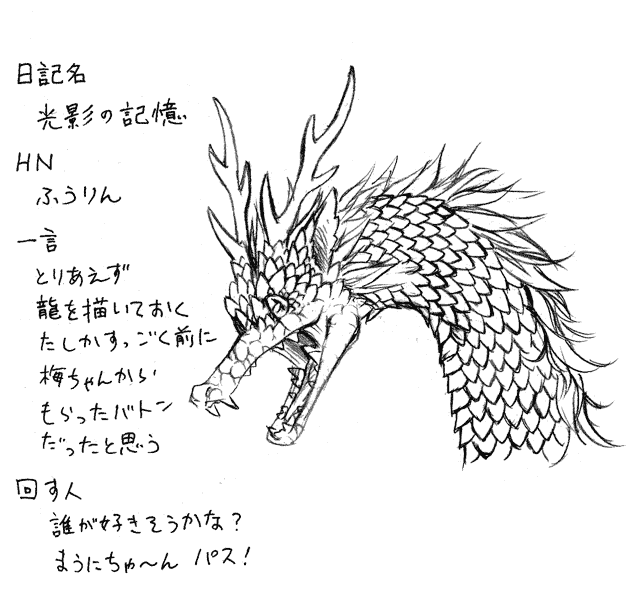 日記名
光影の記憶
HN
ふうりん
一言
とりあえず
龍を描いておく
たしかすっごく前に
梅ちゃんから
もらったバトン
だったと思う
回す人
誰が好きそうかな？
まうにちゃ〜ん パス！